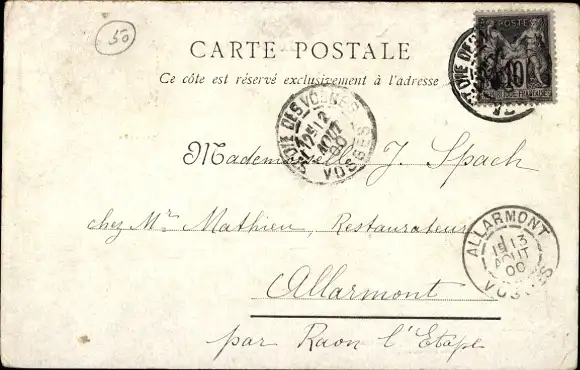 50
CARTE POSTALE
Ce côte est réservé exclusivement à l'adresse
POSTE
10
ST DIE DES VOSGES
12
AOUT
00
VOSGES
Mademoiselle J. Spach
chez Mr Mathieu, Restaurateur
Allarmont
par Raon l'Etape
ALLARMONT
13
AOUT
00
VOSGES